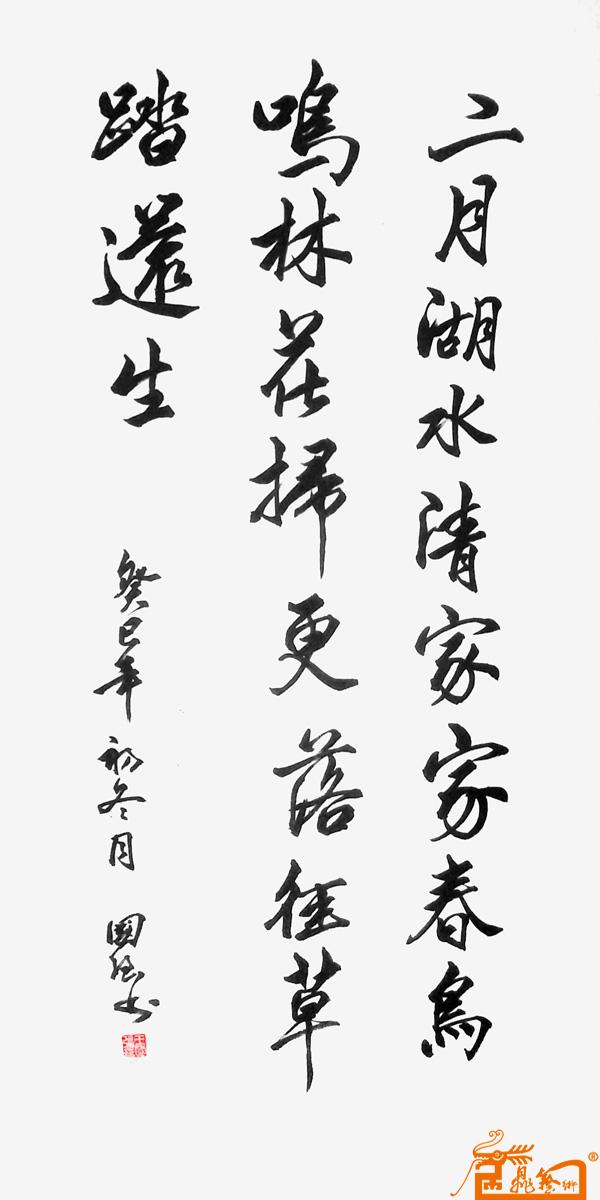 二月湖水清家家春鳥
鳴林花掃更落徑草
踏還生
癸巳年初冬月 國强书